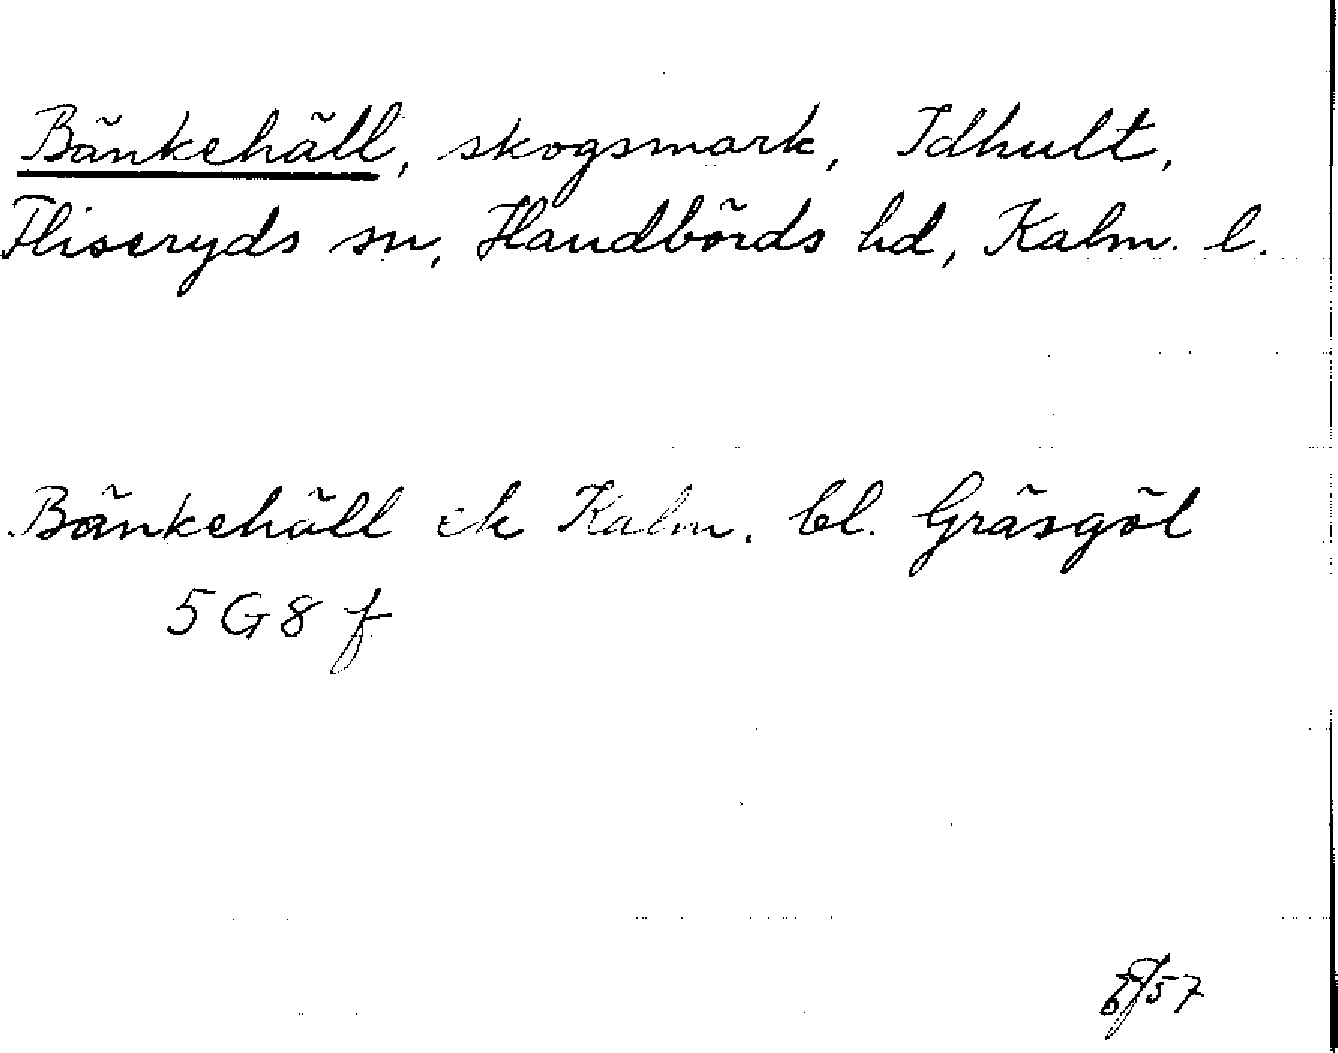 Bänkehäll, skogsmark, Idhult,
Fliseryds sn, Handbörds hd, Kalm. l.
Bänkehäll ek Kalm. bl. Gräsgöl
5G8f
57